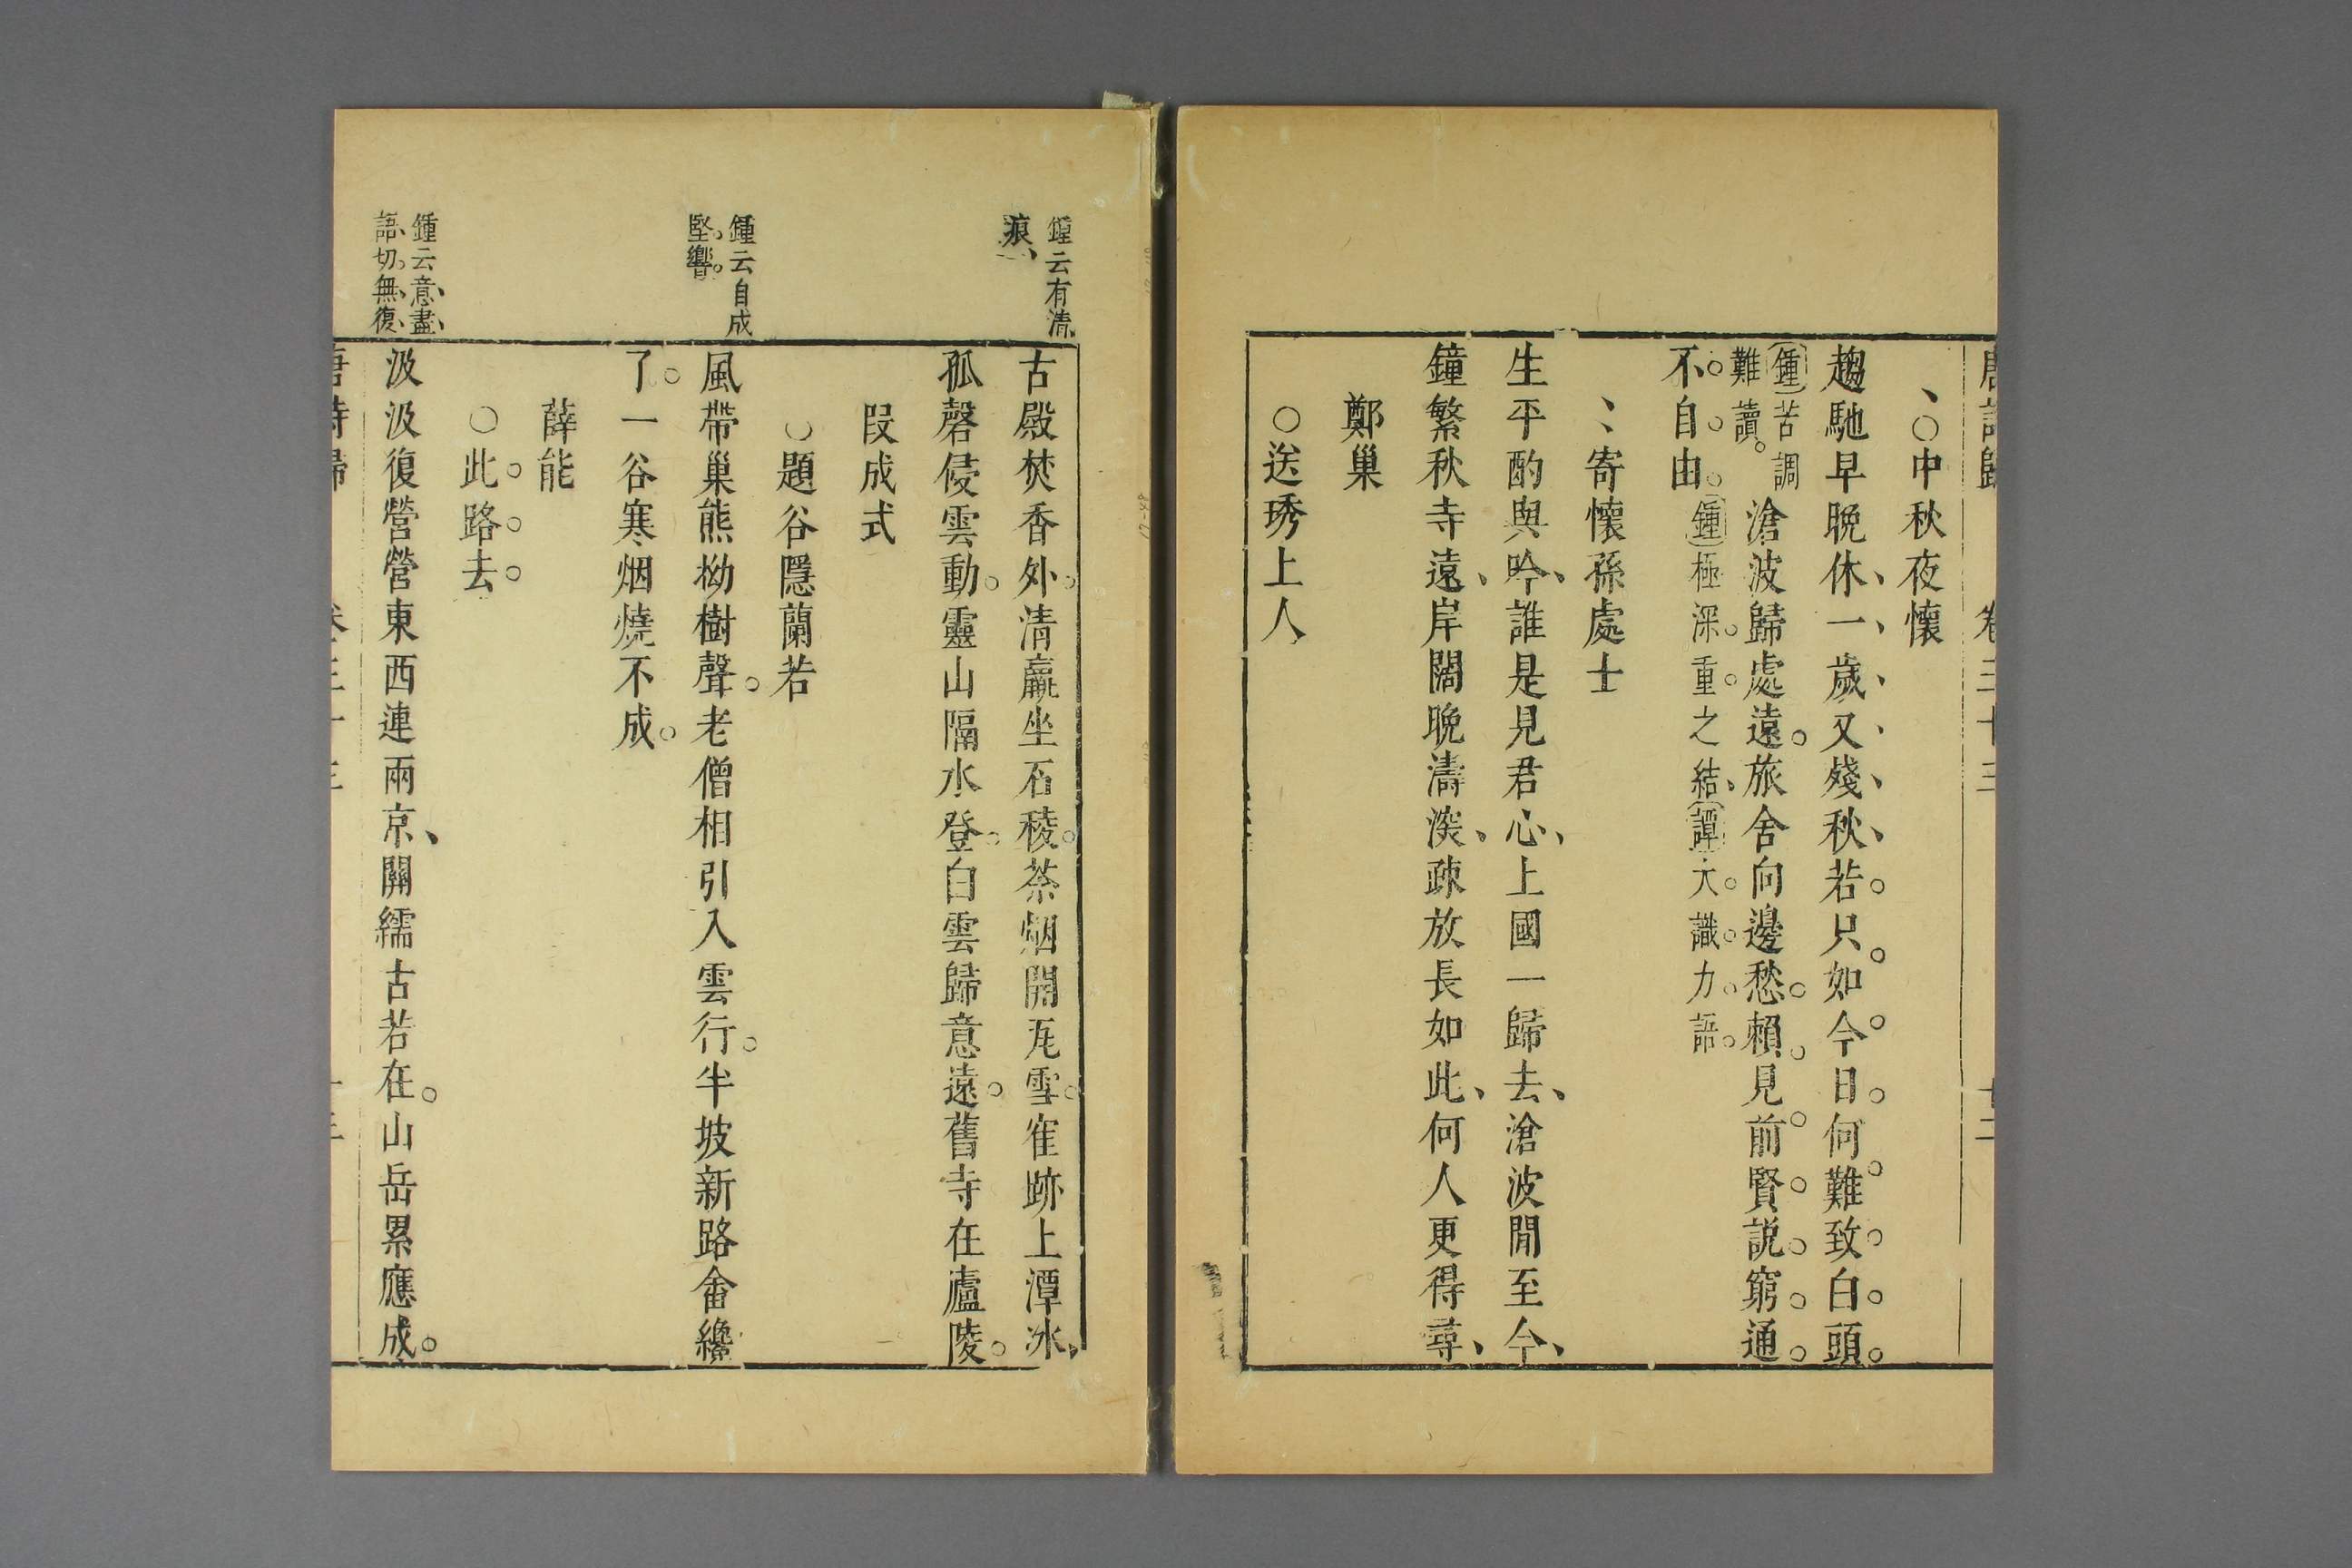 唐詩歸 卷三十三 十二
中秋夜懷
趨馳早晚休一歲又殘秋若只如今日何難致白頭
鍾苦調難讀滄波歸處遠旅舍向邊愁賴見前賢說窮通
不自由鍾極深重之結譚大識力語
寄懷孫處士
生平酌與吟誰是見君心上國一歸去滄波閒至今
鐘繁秋寺遠岸闊晚濤深疎放長如此何人更得尋
鄭巢
送琇上人
鍾云有清
痕
古殿焚香外清羸坐石稜茶烟開瓦雪雀跡上潭冰
孤磬侵雲動靈山隔水登白雲歸意遠舊寺在廬陵
段成式
題谷隱蘭若
鍾云自成
堅響
風帶巢熊拗樹聲老僧相引入雲行半坡新路畬纔
了一谷寒烟燒不成
薛能
此路去
鍾云意盡
語切無復
汲汲復營營東西連兩京關繻古若在山岳累應成
唐詩歸 卷三十三